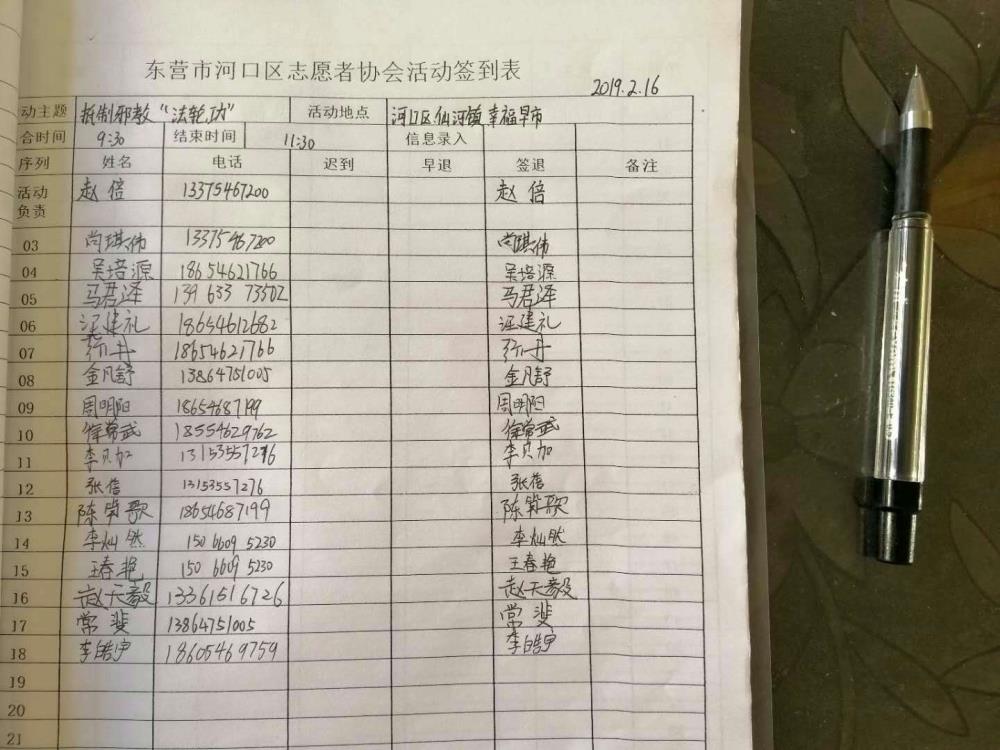 东营市河口区志愿者协会活动签到表
2019.2.16
动主题 抵制邪教“法轮功” 活动地点 河口区仙河镇幸福早市
合时间 9:30 结束时间 11:30 信息录入
序列 姓名 电话 迟到 早退 签退 备注
活动负责 赵倍 13375467200 赵倍
03 尚琪伟 13375467200 尚琪伟
04 吴培源 18654621766 吴培源
05 马君泽 139 633 73502 马君泽
06 汪建礼 18654612682 汪建礼
07 18654621766
08 金凡舒 13864751005 金凡舒
09 周明阳 18654687199 周明阳
10 徐常武 18554629762 徐常武
11 李贝加 13153557276 李贝加
12 张蓓 13153557276 张蓓
13 陈 歌 18654687199 陈 歌
14 李灿然 150 6609 5230 李灿然
15 王春艳 150 6609 5230 王春艳
16 赵天毅 13361516726 赵天毅
17 常斐 13864751005 常斐
18 李皓宇 18605469759 李皓宇
19
20
21